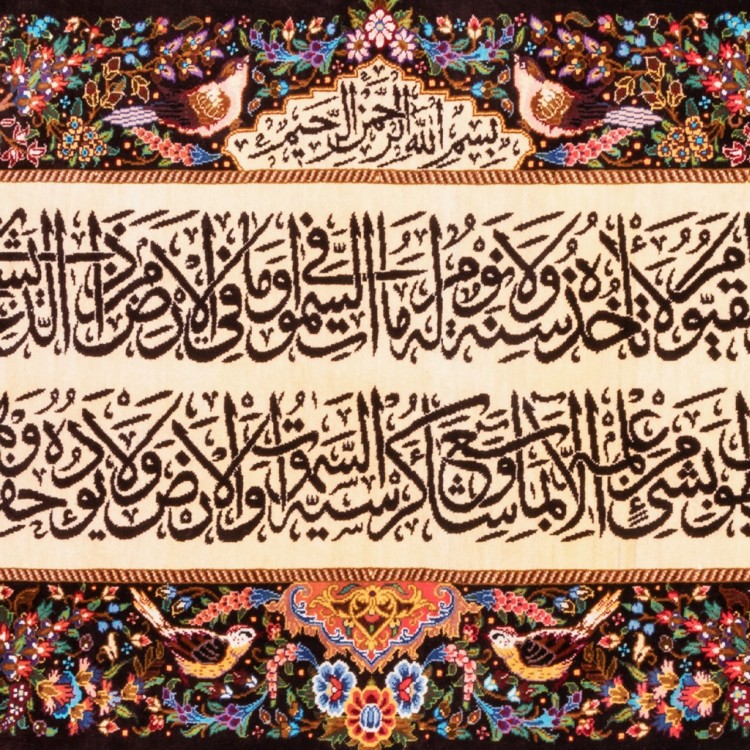 بسم الله الرحمن الرحیم
القيوم لا تأخذه سنة ولا نوم له ما في السموات وما في الأرض من ذا الذي يش
بشيء من علمه إلا بما شاء وسع كرسيه السموات والأرض ولا يؤده حف